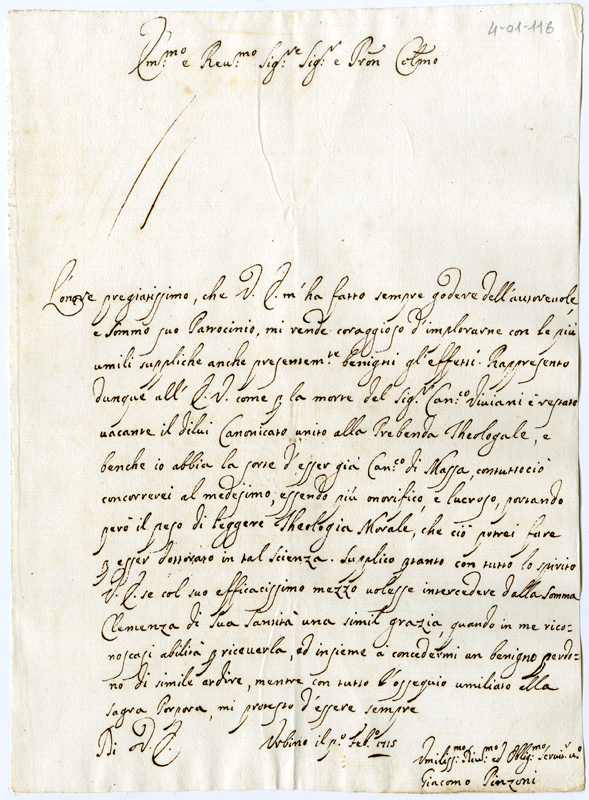 4-01-116
Em.mo e Reu.mo Sig.re Sig.r e Pron Colmo
L'onore pregiatissimo, che V. E. m'ha fatto sempre godere dell'autoreuole,
e sommo suo Patrocinio, mi rende coraggioso d'implorarne con le più
umili suppliche anche presentem.te benigni gl'effetti. Rappresento
dunque all'E. V. come p la morte del Sig.r Can.co Viuiani è restato
uacante il dilui Canonicato unito alla Prebenda Theologale, e
benche io abbia la sorte d'esser già Can.co di Massa, contuttociò
concorrerei al medesimo, essendo più onorifico, e lucroso, portando
però il peso di leggere Theologia Morale, che ciò potrei fare
p esser dottorato in tal scienza. Supplico ptanto con tutto lo spirito
V. E. se col suo efficacissimo mezzo uolesse intercedere dalla somma
Clemenza di Sua Santità una simil grazia, quando in me rico-
noscasi abilità p riceuerla, ed insieme à concedermi un benigno perdo-
no di simile ardire, mentre con tutto l'ossequio umiliato alla
sagra Porpora, mi protesto d'essere sempre
Di V. E.
Urbino il p.o Feb.o 1715
Umiliss.mo Diu.mo ed Obblig.mo Seruit.r u.o
Giacomo Pinzoni